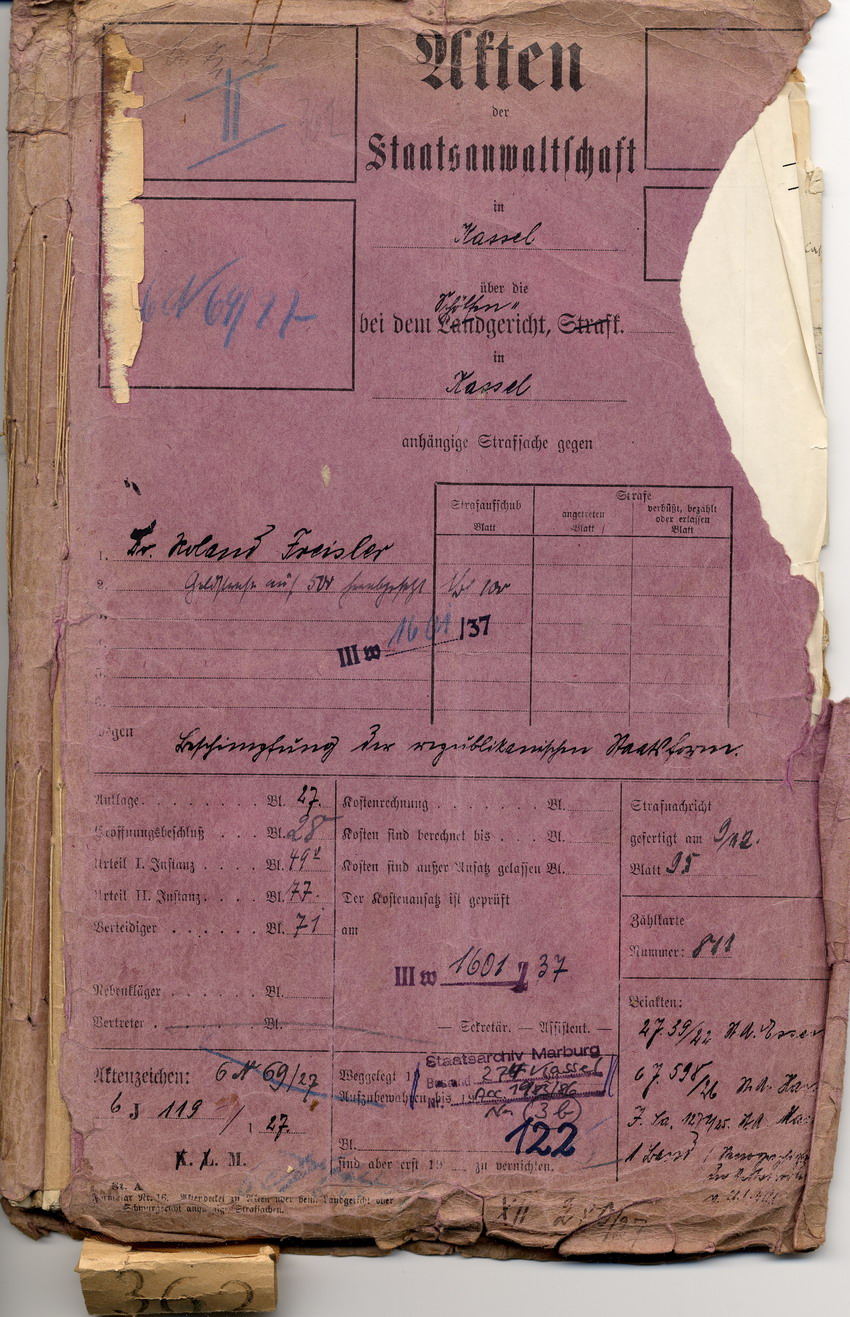 II
Akten
der
Staatsanwaltschaft
in
Kassel
6 N 69/27
über die
Schöffen"
bei dem Landgericht, Strafk.
in
Kassel
anhängige Strafsache gegen
Strafaufschub
Blatt
Strafe
angetreten
Blatt
verbüßt, bezahlt
oder erlassen
Blatt
1. Dr. Roland Freisler
2. Geldstrafe auf 500 herabgesetzt Bl 100
III w 1601/37
5.
6.
wegen Beschimpfung der republikanischen Staatsform.
Anklage. Bl. 27.
Eröffnungsbeschluß Bl. 28
Urteil I. Instanz Bl. 49
Urteil II. Instanz. Bl. 77.
Verteidiger Bl. 71
Nebenkläger Bl.
Vertreter Bl.
Kostenrechnung Bl.
Kosten sind berechnet bis Bl.
Kosten sind außer Ansatz gelassen Bl.
Der Kostenansatz ist geprüft
am
III w 1601 37
— Sekretär. — Assistent. —
Strafnachricht
gefertigt am 9/12.
Blatt 95
Zählkarte
Nummer: 811
Beiakten:
27 39/22
6 J. 598/26
1 Band
Aktenzeichen: 6 N 69/27
6 J 119/27.
K. L. M.
Weggelegt
Aufzubewahren bis
Staatsarchiv Marburg
Bestand 274 Kassel
Nr. Acc 1983/86
Nr. (36)
122
Bl.
sind aber erst 19 zu vernichten.
St. A
Formular Nr. 16. Aktendeckel zu Akten über beim Landgericht oder
Schwurgericht anhängige Strafsachen.
XII
362